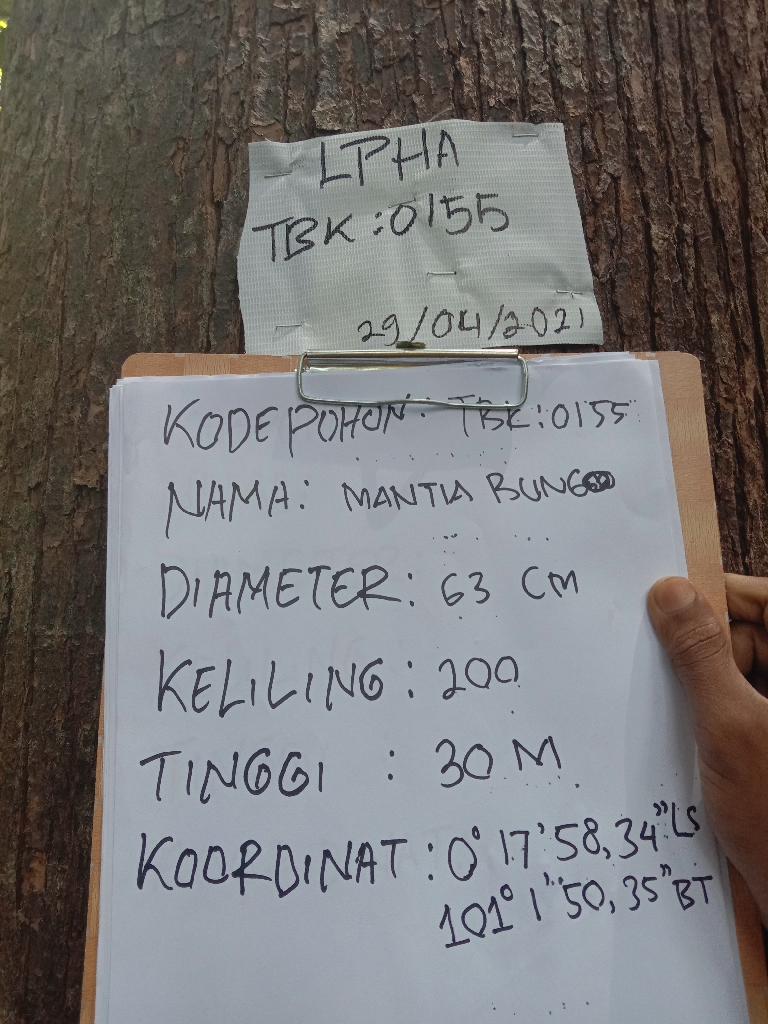 LPHA
TBK:0155
29/04/2021
KODE POHON: TBK:0155
NAMA: MANTIA BUNG
DIAMETER: 63 CM
KELILING: 200
TINGGI : 30 M
KOORDINAT: 0° 17' 58,34" LS
101° 1' 50,35" BT